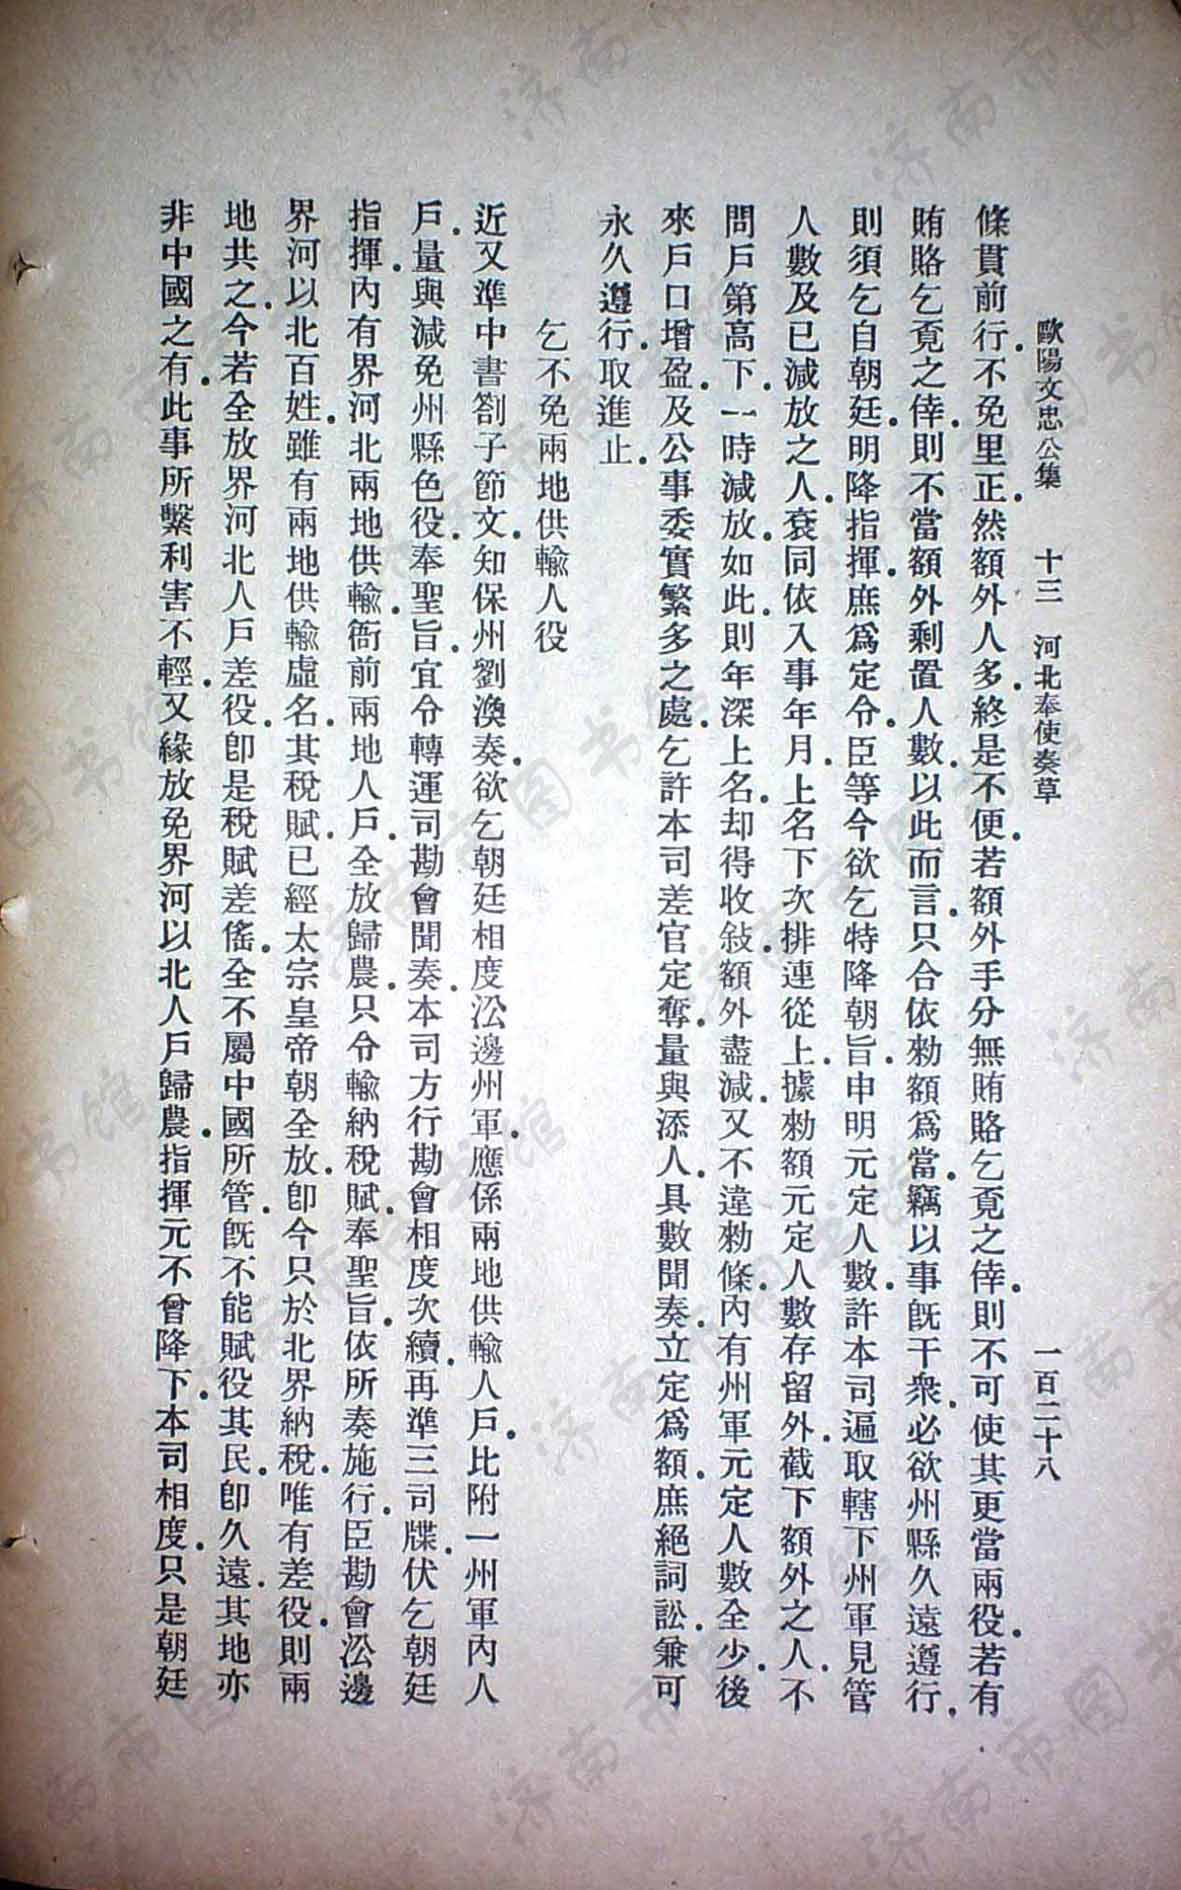 歐陽文忠公集　十三　河北奉使奏草　一百二十八
條貫前行.不免里正.然額外人多.終是不便.若額外手分無賄賂乞覓之倖.則不可使其更當兩役.若有
賄賂乞覓之倖.則不當額外剩置人數.以此而言.只合依勑額爲當.竊以事旣干衆.必欲州縣久遠遵行.
則須乞自朝廷.明降指揮.庶爲定令.臣等今欲乞特降朝旨.申明元定人數.許本司遍取轄下州軍見管
人數及已減放之人.衮同依入事年月.上名下次排連從上.據勑額元定人數存留外.截下額外之人.不
問戶第高下.一時減放.如此.則年深上名.却得收敍.額外盡減.又不違勑條.內有州軍元定人數全少.後
來戶口增盈.及公事委實繁多之處.乞許本司差官定奪.量與添人.具數聞奏.立定爲額.庶絕詞訟.兼可
永久遵行.取進止.
乞不免兩地供輸人役
近又準中書劄子節文.知保州劉渙奏.欲乞朝廷相度㳂邊州軍.應係兩地供輸人戶.比附一州軍內人
戶.量與減免州縣色役.奉聖旨.宜令轉運司勘會聞奏.本司方行勘會相度次續.再準三司牒.伏乞朝廷
指揮.內有界河北兩地供輸.衙前兩地人戶.全放歸農.只令輸納稅賦.奉聖旨.依所奏施行.臣勘會㳂邊
界河以北百姓.雖有兩地供輸虛名.其稅賦.已經太宗皇帝朝全放.卽今只於北界納稅.唯有差役.則兩
地共之.今若全放界河北人戶差役.卽是稅賦差徭.全不屬中國所管.旣不能賦役其民.卽久遠.其地亦
非中國之有.此事所繫利害不輕.又緣放免界河以北人戶歸農.指揮元不曾降下.本司相度.只是朝廷